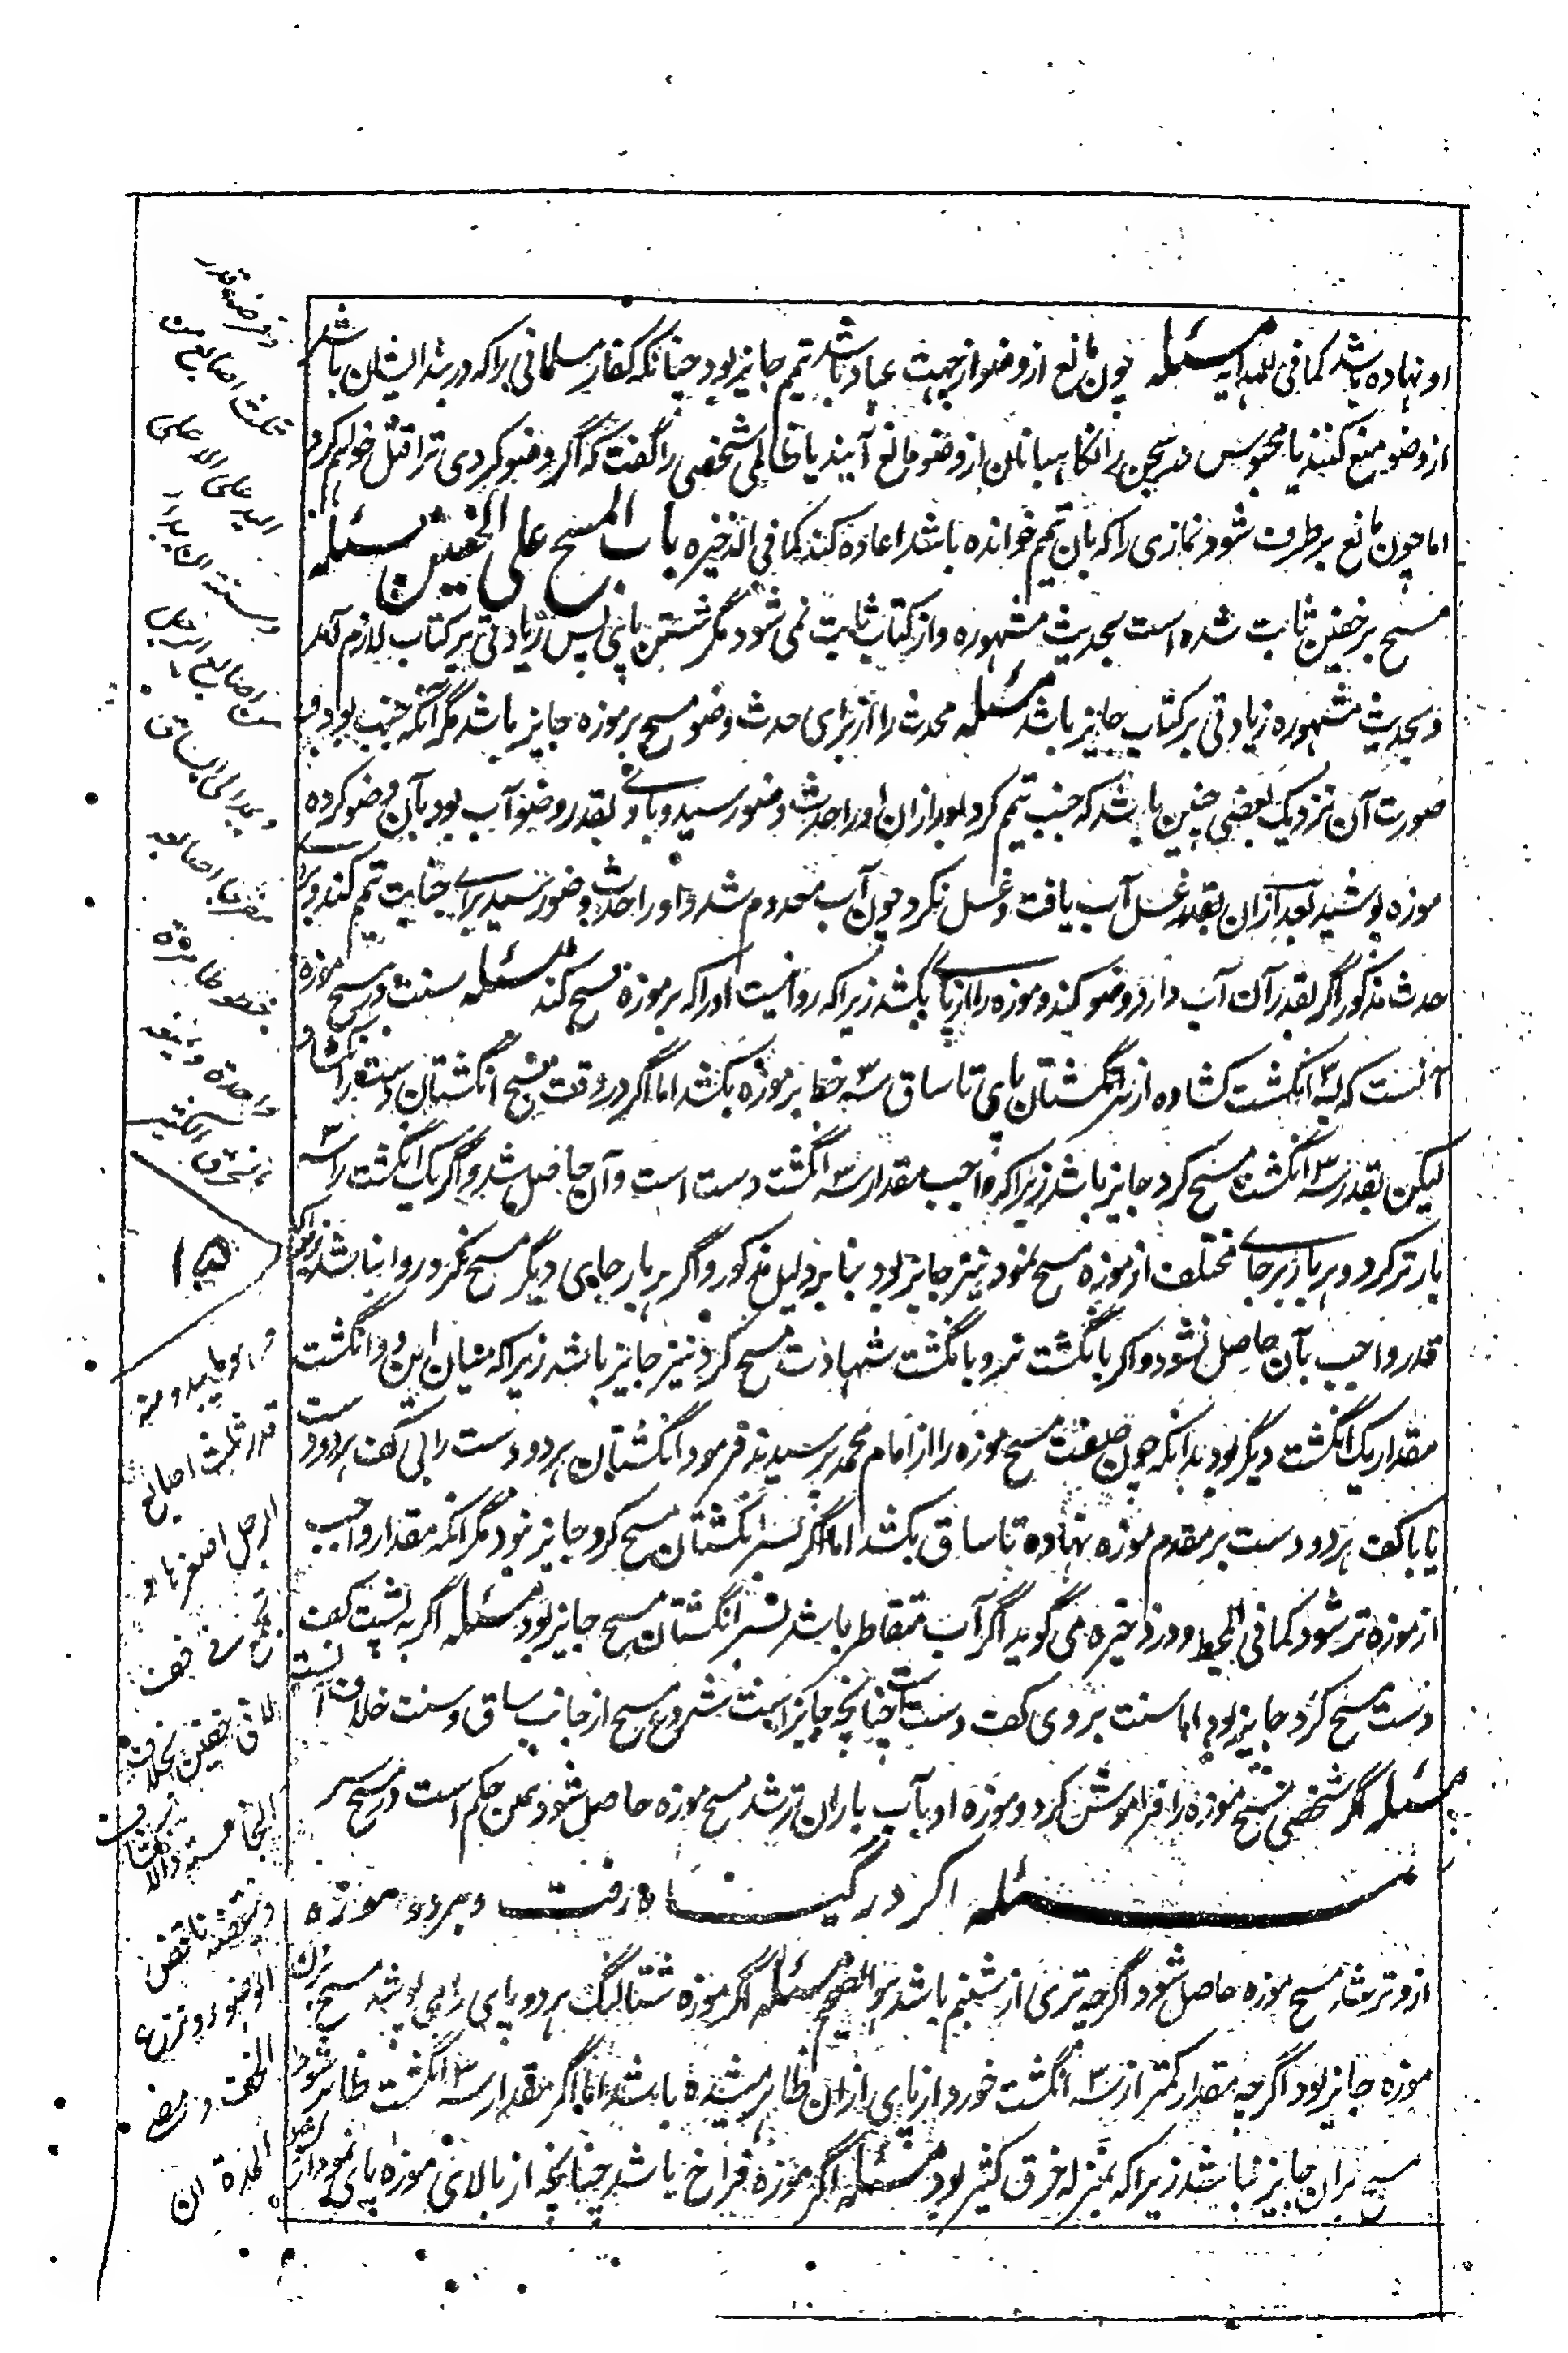 او نهاده باشد کما فی الهدایه مسئله چون مانع از وضو از جهت عباد باشد تیمم جایز بود چنانکه کفار مسلمانی را که در بند ایشان باشد
از وضو منع کنند یا محبوس در سجن را نگاهبانان از وضو مانع آیند یا ظالمی شخصی را گفت که اگر وضو کردی ترا قتل خواهم کرد
اما چون مانع برطرف شود نمازی را که بآن تیمم خوانده باشد اعاده کند کما فی الذخیره باب المسح علی الخفین مسئله
مسح بر خفین ثابت شده است بحدیث مشهوره و از کتاب ثابت نمی شود مگر شستن پای پس زیادتی بر کتاب لازم آمد
و بحدیث مشهوره زیادتی بر کتاب جایز باشد مسئله محدث را از برای حدث وضو مسح بر موزه جایز باشد مگر آنکه جنب بود و
صورت آن نزدیک بعضی چنین باشد که جنب تیمم کرد بعد از آن او را حدث وضو رسید و باوی بقدر وضو آب بود بآن وضو کرده
موزه پوشید بعد از آن بقدر غسل آب یافت و غسل نکرد چون آب معدوم شد و او را حدث وضو رسید برای جنابت تیمم کند و برای
حدث مذکور اگر بقدر آن آب دارد وضو کند و موزه را از پا بکشد زیرا که روا نیست او را که بر موزه مسح کند مسئله سنت در مسح موزه
آنست که بسه ۳ انگشت کشاده از سر انگشتان پای تا ساق سه ۳ خط بر موزه بکشد اما اگر در وقت مسح انگشتان دست را نکشاد و
لیکن بقدر سه ۳ انگشت مسح کرد جایز باشد زیرا که واجب مقدار سه ۳ انگشت دست است و آن حاصل شد و اگر یک انگشت را سه ۳
بار تر کرد و هر بار بر جای مختلف از موزه مسح نمود نیز جایز بود بنا بر دلیل مذکور و اگر هر بار جای دیگر مسح نکرد روا نباشد زیرا که
قدر واجب بآن حاصل نشود و اگر بانگشت نر و بانگشت شهادت مسح کرد نیز جایز باشد زیرا که میان این دو انگشت
مقدار یک انگشت دیگر بود بدانکه چون صفت مسح موزه را از امام محمد پرسیدند فرمود انگشتان هر دو دست را بی کف هر دو دست
یا با کف هر دو دست بر مقدم موزه نهاده تا ساق بکشد اما اگر بسر انگشتان مسح کرد جایز نبود مگر آنکه مقدار واجب
از موزه تر شود کما فی المحیط و در ذخیره می گوید اگر آب متقاطر باشد بسر انگشتان مسح جایز بود مسئله اگر به پشت کف
دست مسح کرد جایز بود اما سنت بروی کف دست است چنانچه جایز است شروع مسح از جانب ساق و سنت خلاف آنست
مسئله اگر شخصی مسح موزه را فراموش کرد و موزه او بآب باران تر شد مسح موزه حاصل شود همین حکم است در مسح سر
مسئله اگر در گیاه رفت و هر دو موزه
از و تر شد مسح موزه حاصل شود اگر چه تری از شبنم باشد هو الصحیح مسئله اگر موزه شتالنگ هر دو پای را می پوشد مسح بران
موزه جایز بود اگر چه مقدار کمتر از سه ۳ انگشت خورد از پای از ان ظاهر شده باشد اما اگر مقدار سه ۳ انگشت ظاهر شود
مسح بران جایز نباشد زیرا که بمنزله خرق کثیر بود مسئله اگر موزه فراخ باشد چنانچه از بالای موزه پای نمودار شود
و فرضه قدر
ثلث اصابع من
الید علی الاعلی
و سنته ان یبدا
من اصابع الرجل
و یمد الی الساق
مفرجا اصابعه
خطوطا مرة
واحدة و یمنعه
خرق الکبیر
۱۵
قدر ثلث اصابع
الرجل اصغرها و
یجمع فی خف
لا فی خفین بخلاف
النجاسة و الانکشاف
و ینقضه ناقض
الوضوء و نزع
الخف و مضی
المدة ان